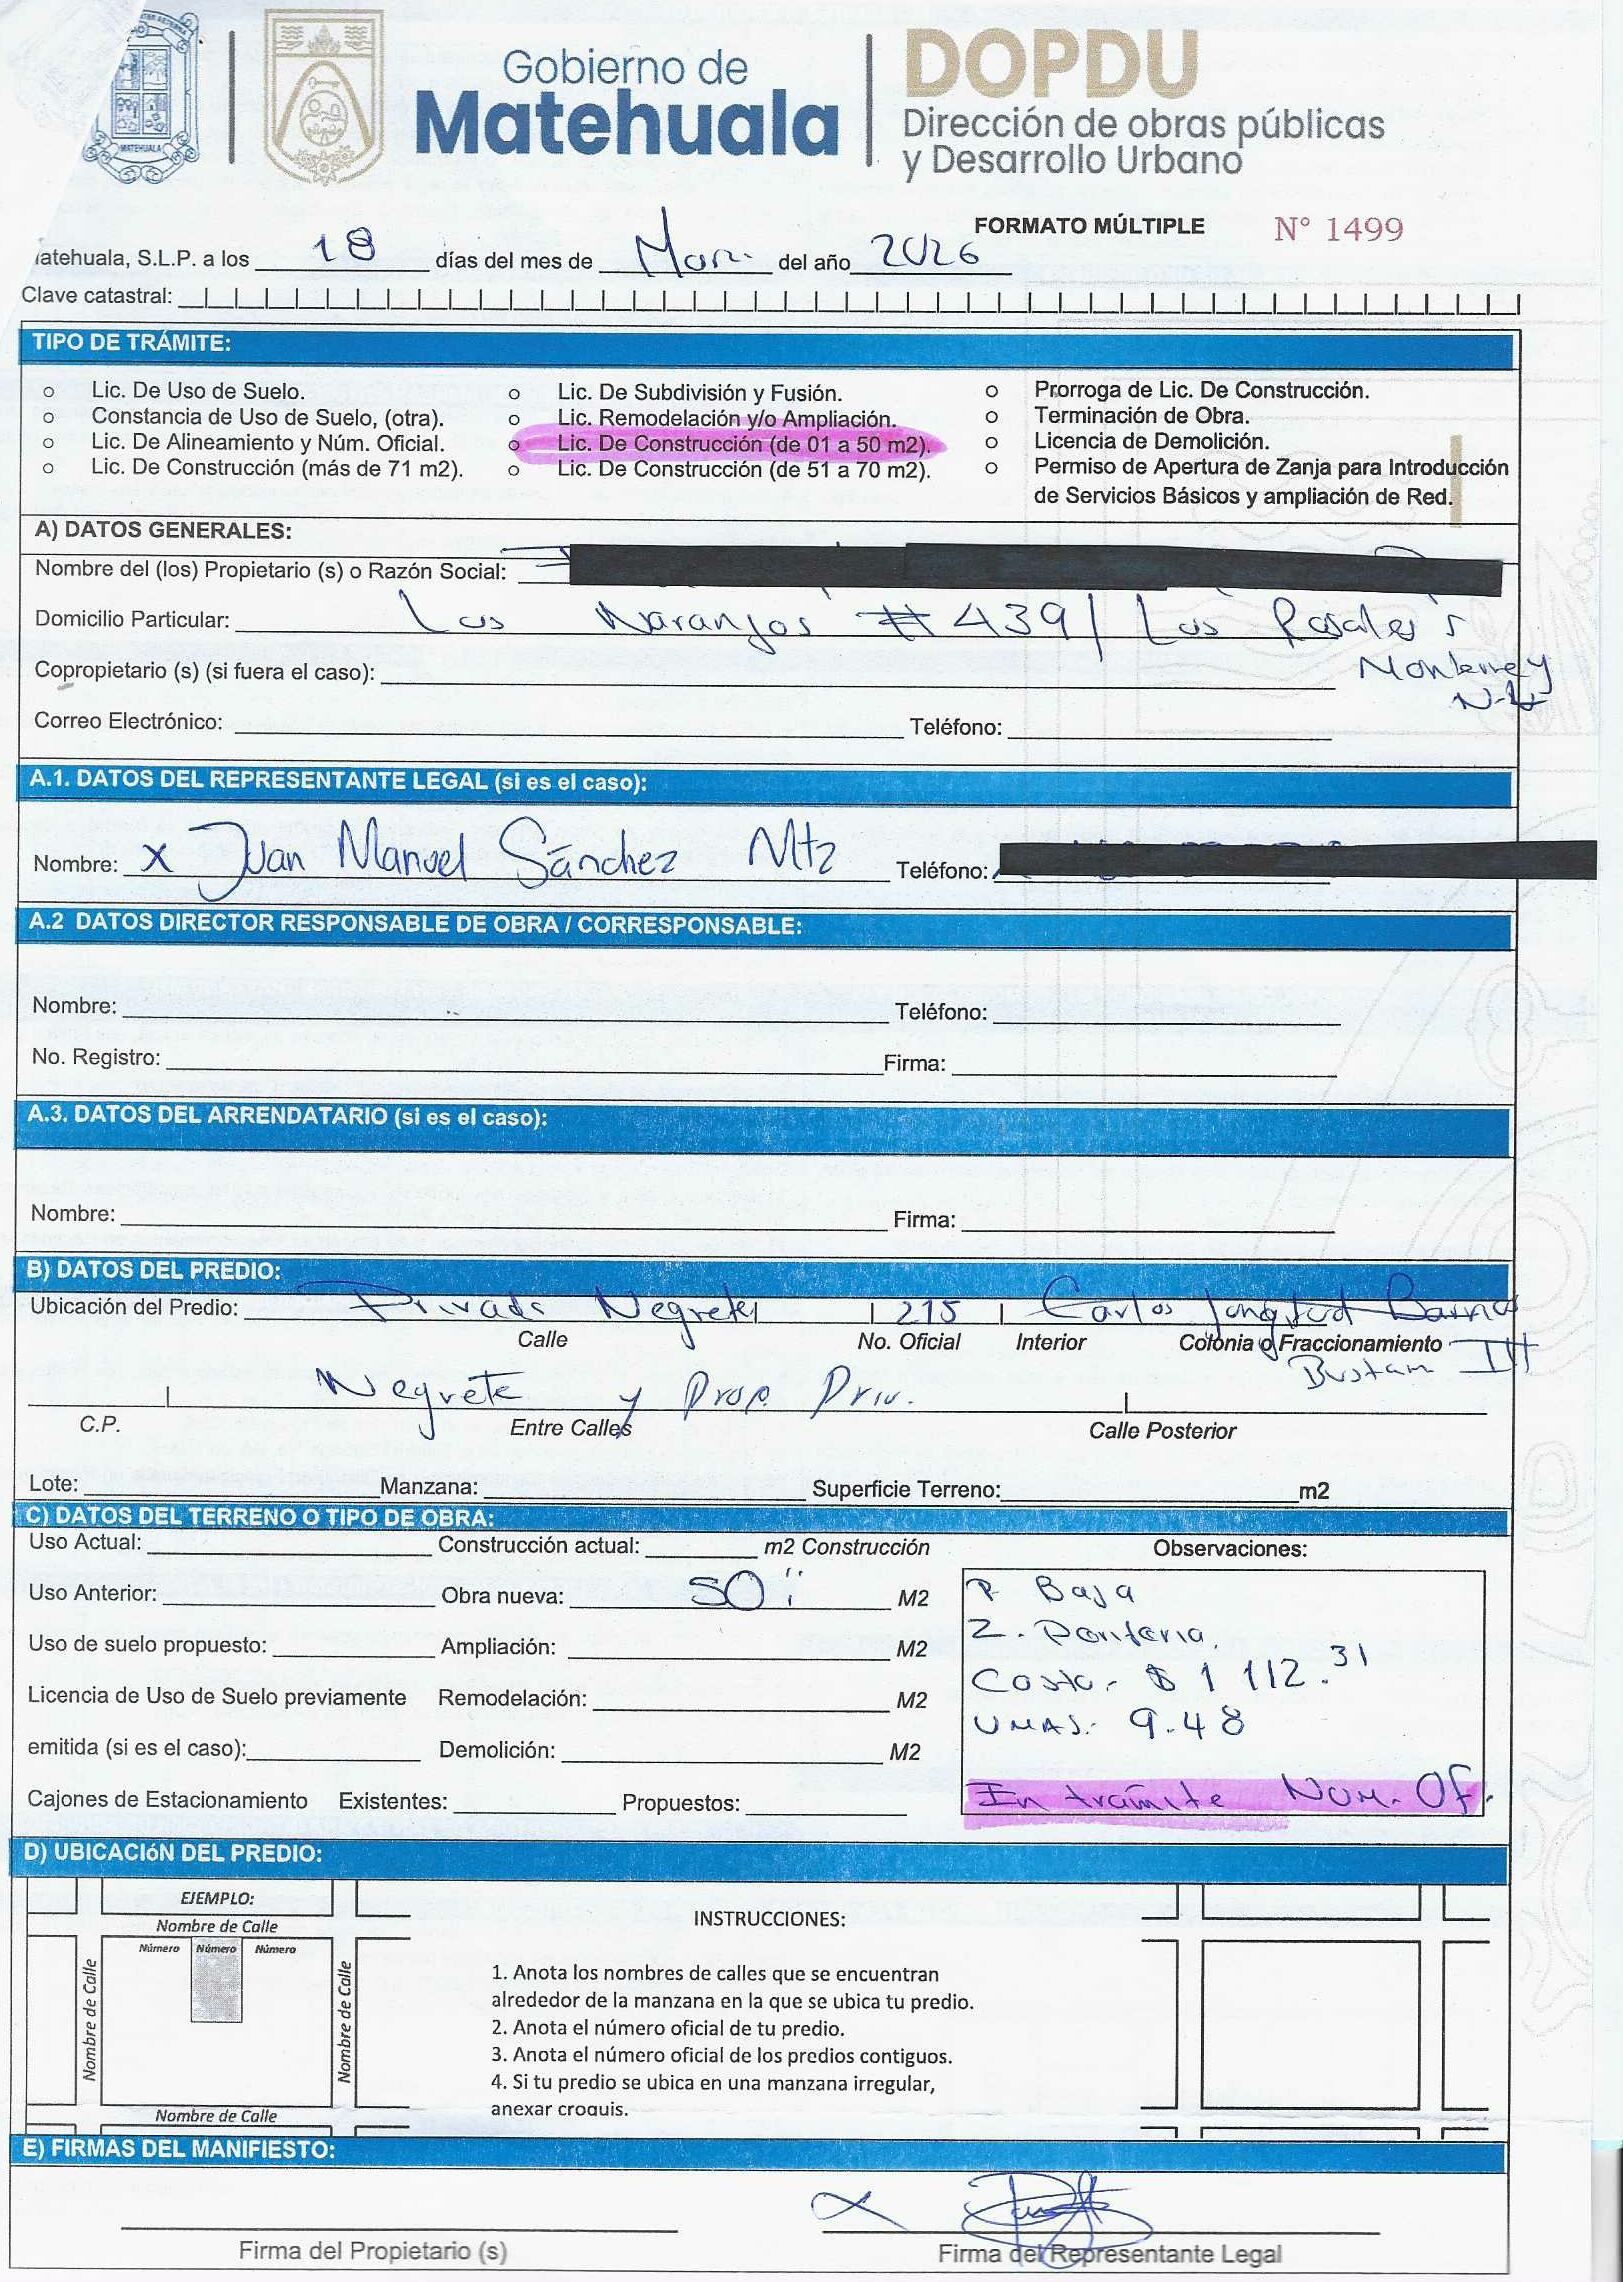 MATEHUALA
Gobierno de
Matehuala
DOPDU
Dirección de obras públicas
y Desarrollo Urbano
FORMATO MÚLTIPLE N° 1499
atehuala, S.L.P. a los 18 días del mes de Mar. del año 2026
Clave catastral:
TIPO DE TRÁMITE:
o Lic. De Uso de Suelo. o Lic. De Subdivisión y Fusión. o Prorroga de Lic. De Construcción.
o Constancia de Uso de Suelo, (otra). o Lic. Remodelación y/o Ampliación. o Terminación de Obra.
o Lic. De Alineamiento y Núm. Oficial. o Lic. De Construcción (de 01 a 50 m2). o Licencia de Demolición.
o Lic. De Construcción (más de 71 m2). o Lic. De Construcción (de 51 a 70 m2). o Permiso de Apertura de Zanja para Introducción
de Servicios Básicos y ampliación de Red.
A) DATOS GENERALES:
Nombre del (los) Propietario (s) o Razón Social:
Domicilio Particular: Los Naranjos # 439 / Los Rosales
Copropietario (s) (si fuera el caso): Monterrey
N.L
Correo Electrónico: Teléfono:
A.1. DATOS DEL REPRESENTANTE LEGAL (si es el caso):
Nombre: x Juan Manuel Sánchez Mtz Teléfono:
A.2 DATOS DIRECTOR RESPONSABLE DE OBRA / CORRESPONSABLE:
Nombre: Teléfono:
No. Registro: Firma:
A.3. DATOS DEL ARRENDATARIO (si es el caso):
Nombre: Firma:
B) DATOS DEL PREDIO:
Ubicación del Predio: Privada Negrete 215 Carlos Jongitud Barrios
Calle No. Oficial Interior Colonia o Fraccionamiento
Bustam III
Negrete y Prop. Priv.
C.P. Entre Calles Calle Posterior
Lote: Manzana: Superficie Terreno: m2
C) DATOS DEL TERRENO O TIPO DE OBRA:
Uso Actual: Construcción actual: m2 Construcción Observaciones:
Uso Anterior: Obra nueva: 50 M2 P Baja
Uso de suelo propuesto: Ampliación: M2 Z.
Licencia de Uso de Suelo previamente Remodelación: M2 Costo.- $ 1 112.31
UMAS.- 9.48
emitida (si es el caso): Demolición: M2
Cajones de Estacionamiento Existentes: Propuestos: In trámite Num. Of.
D) UBICACIóN DEL PREDIO:
EJEMPLO:
Nombre de Calle
Número Número Número
Nombre de Calle
Nombre de Calle
Nombre de Calle
INSTRUCCIONES:
1. Anota los nombres de calles que se encuentran
alrededor de la manzana en la que se ubica tu predio.
2. Anota el número oficial de tu predio.
3. Anota el número oficial de los predios contiguos.
4. Si tu predio se ubica en una manzana irregular,
anexar croquis.
E) FIRMAS DEL MANIFIESTO:
x
Firma del Propietario (s) Firma del Representante Legal